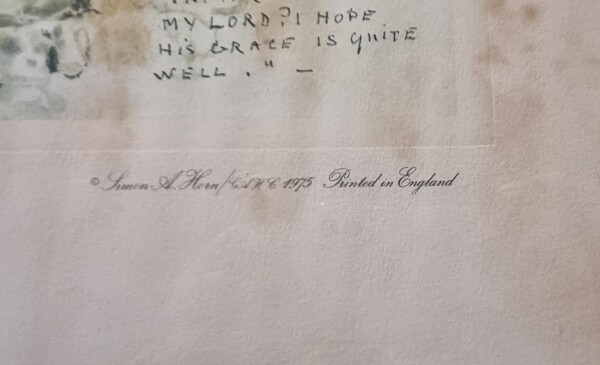 MY LORD? I HOPE
HIS GRACE IS QUITE
WELL." —
© Simon A. Horn/GAHC 1975 Printed in England